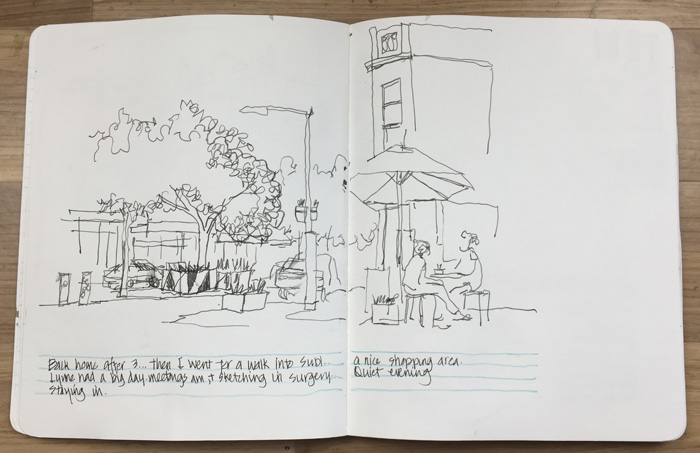 Back home after 3... then I went for a walk into Subi.
Lynne had a big day. meetings am, + sketching in surgery.
Staying in.
a nice shopping area.
Quiet evening